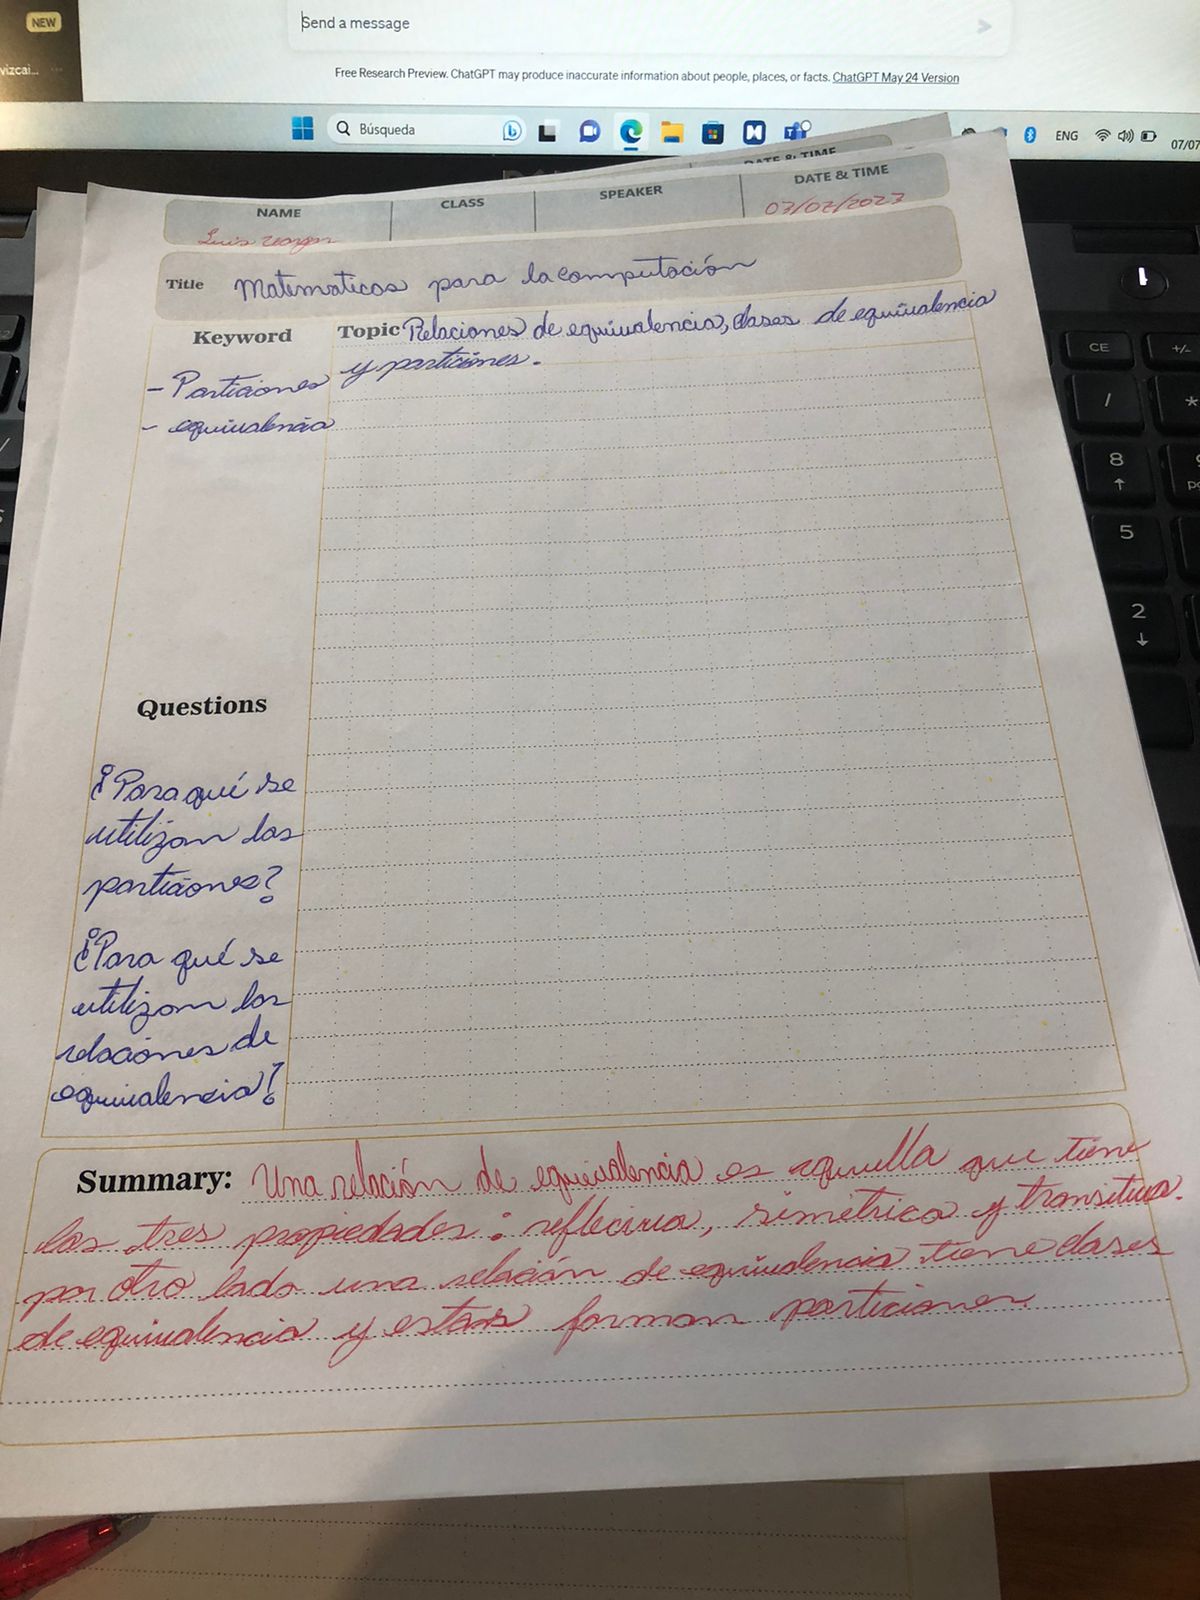 NEW
vizcai...
Send a message
Free Research Preview. ChatGPT may produce inaccurate information about people, places, or facts. ChatGPT May 24 Version
Búsqueda
ENG
07/07
DATE & TIME
NAME CLASS SPEAKER DATE & TIME
Luis 07/07/2023
Title Matematicas para la computación
Keyword
Topic Relaciones de equivalencia, clases de equivalencia
y particiones.
- Particiones
- equivalencia
Questions
¿Para qué se
utilizan las
particiones?
¿Para qué se
utilizan las
relaciones de
equivalencia?
Summary: Una relación de equivalencia es aquella que tiene
las tres propiedades: reflexiva, simétrica y transitiva.
por otro lado una relación de equivalencia tiene clases
de equivalencia y estas forman particiones.
CE
+/-
/
*
8
5
2